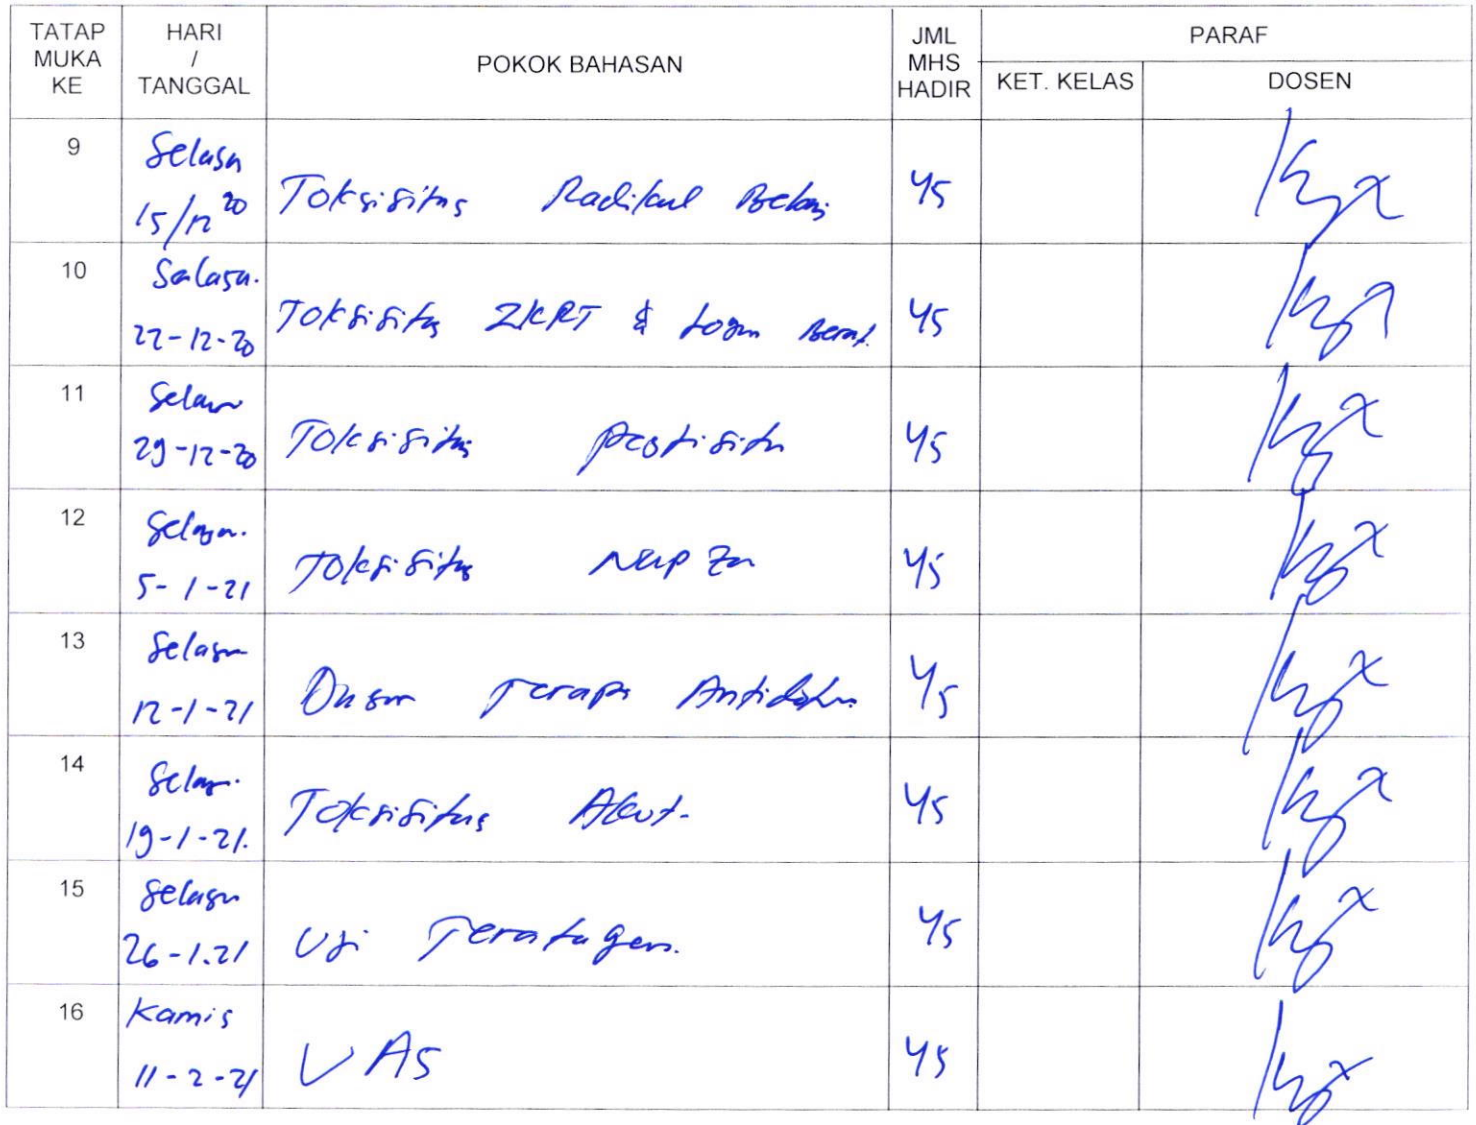 TATAP MUKA KE HARI / TANGGAL POKOK BAHASAN JML MHS HADIR PARAF
KET. KELAS DOSEN
9 Selasa 15/12 20 Toksisitas Radikal Bebas 45
10 Selasa. 22-12-20 Toksisitas ZKRT & Logam Berat. 45
11 Selasa 29-12-20 Toksisitas Pestisida 45
12 Selasa. 5-1-21 Toksisitas Napza 45
13 Selasa 12-1-21 Dasar Terapi Antidotum 45
14 Selasa. 19-1-21. Toksisitas Akut. 45
15 Selasa 26-1.21 Uji Teratogen. 45
16 Kamis 11-2-21 UAS 45